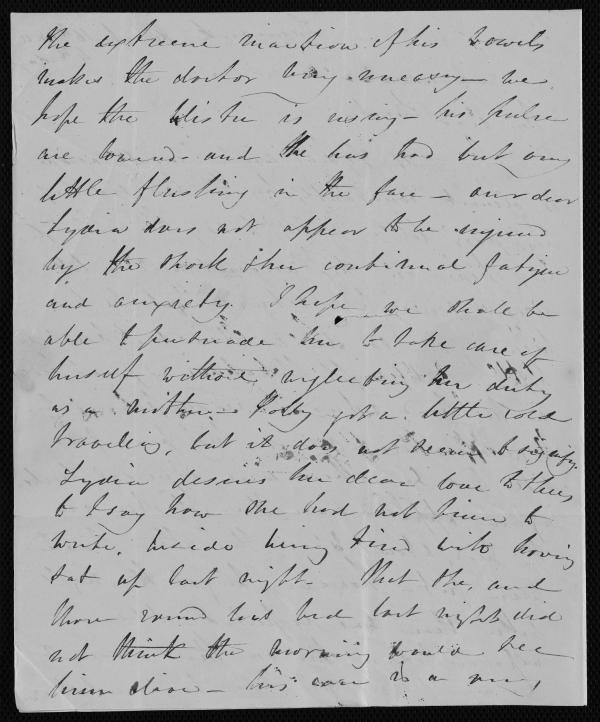 the extreme inaction of his bowels
makes the doctor very uneasy - we
hope the blister is rising - his pulse
are lowered - and the has had but very
little flushing in the face - our dear
Lydia does not appear to be injured
by the shock & her continual fatigue
and anxiety. I hope we shall be
able to persuade her to take care of
herself without neglecting her duty
as a mother - got a little cold
traveling, but it does not seem to signify.
Lydia desires her dear love to thee,
& to say how she had not time to
write, beside being tired with having
sat up last night. That she, and
those round his bed last night did
not think the morning would see
him alive - his case is a very